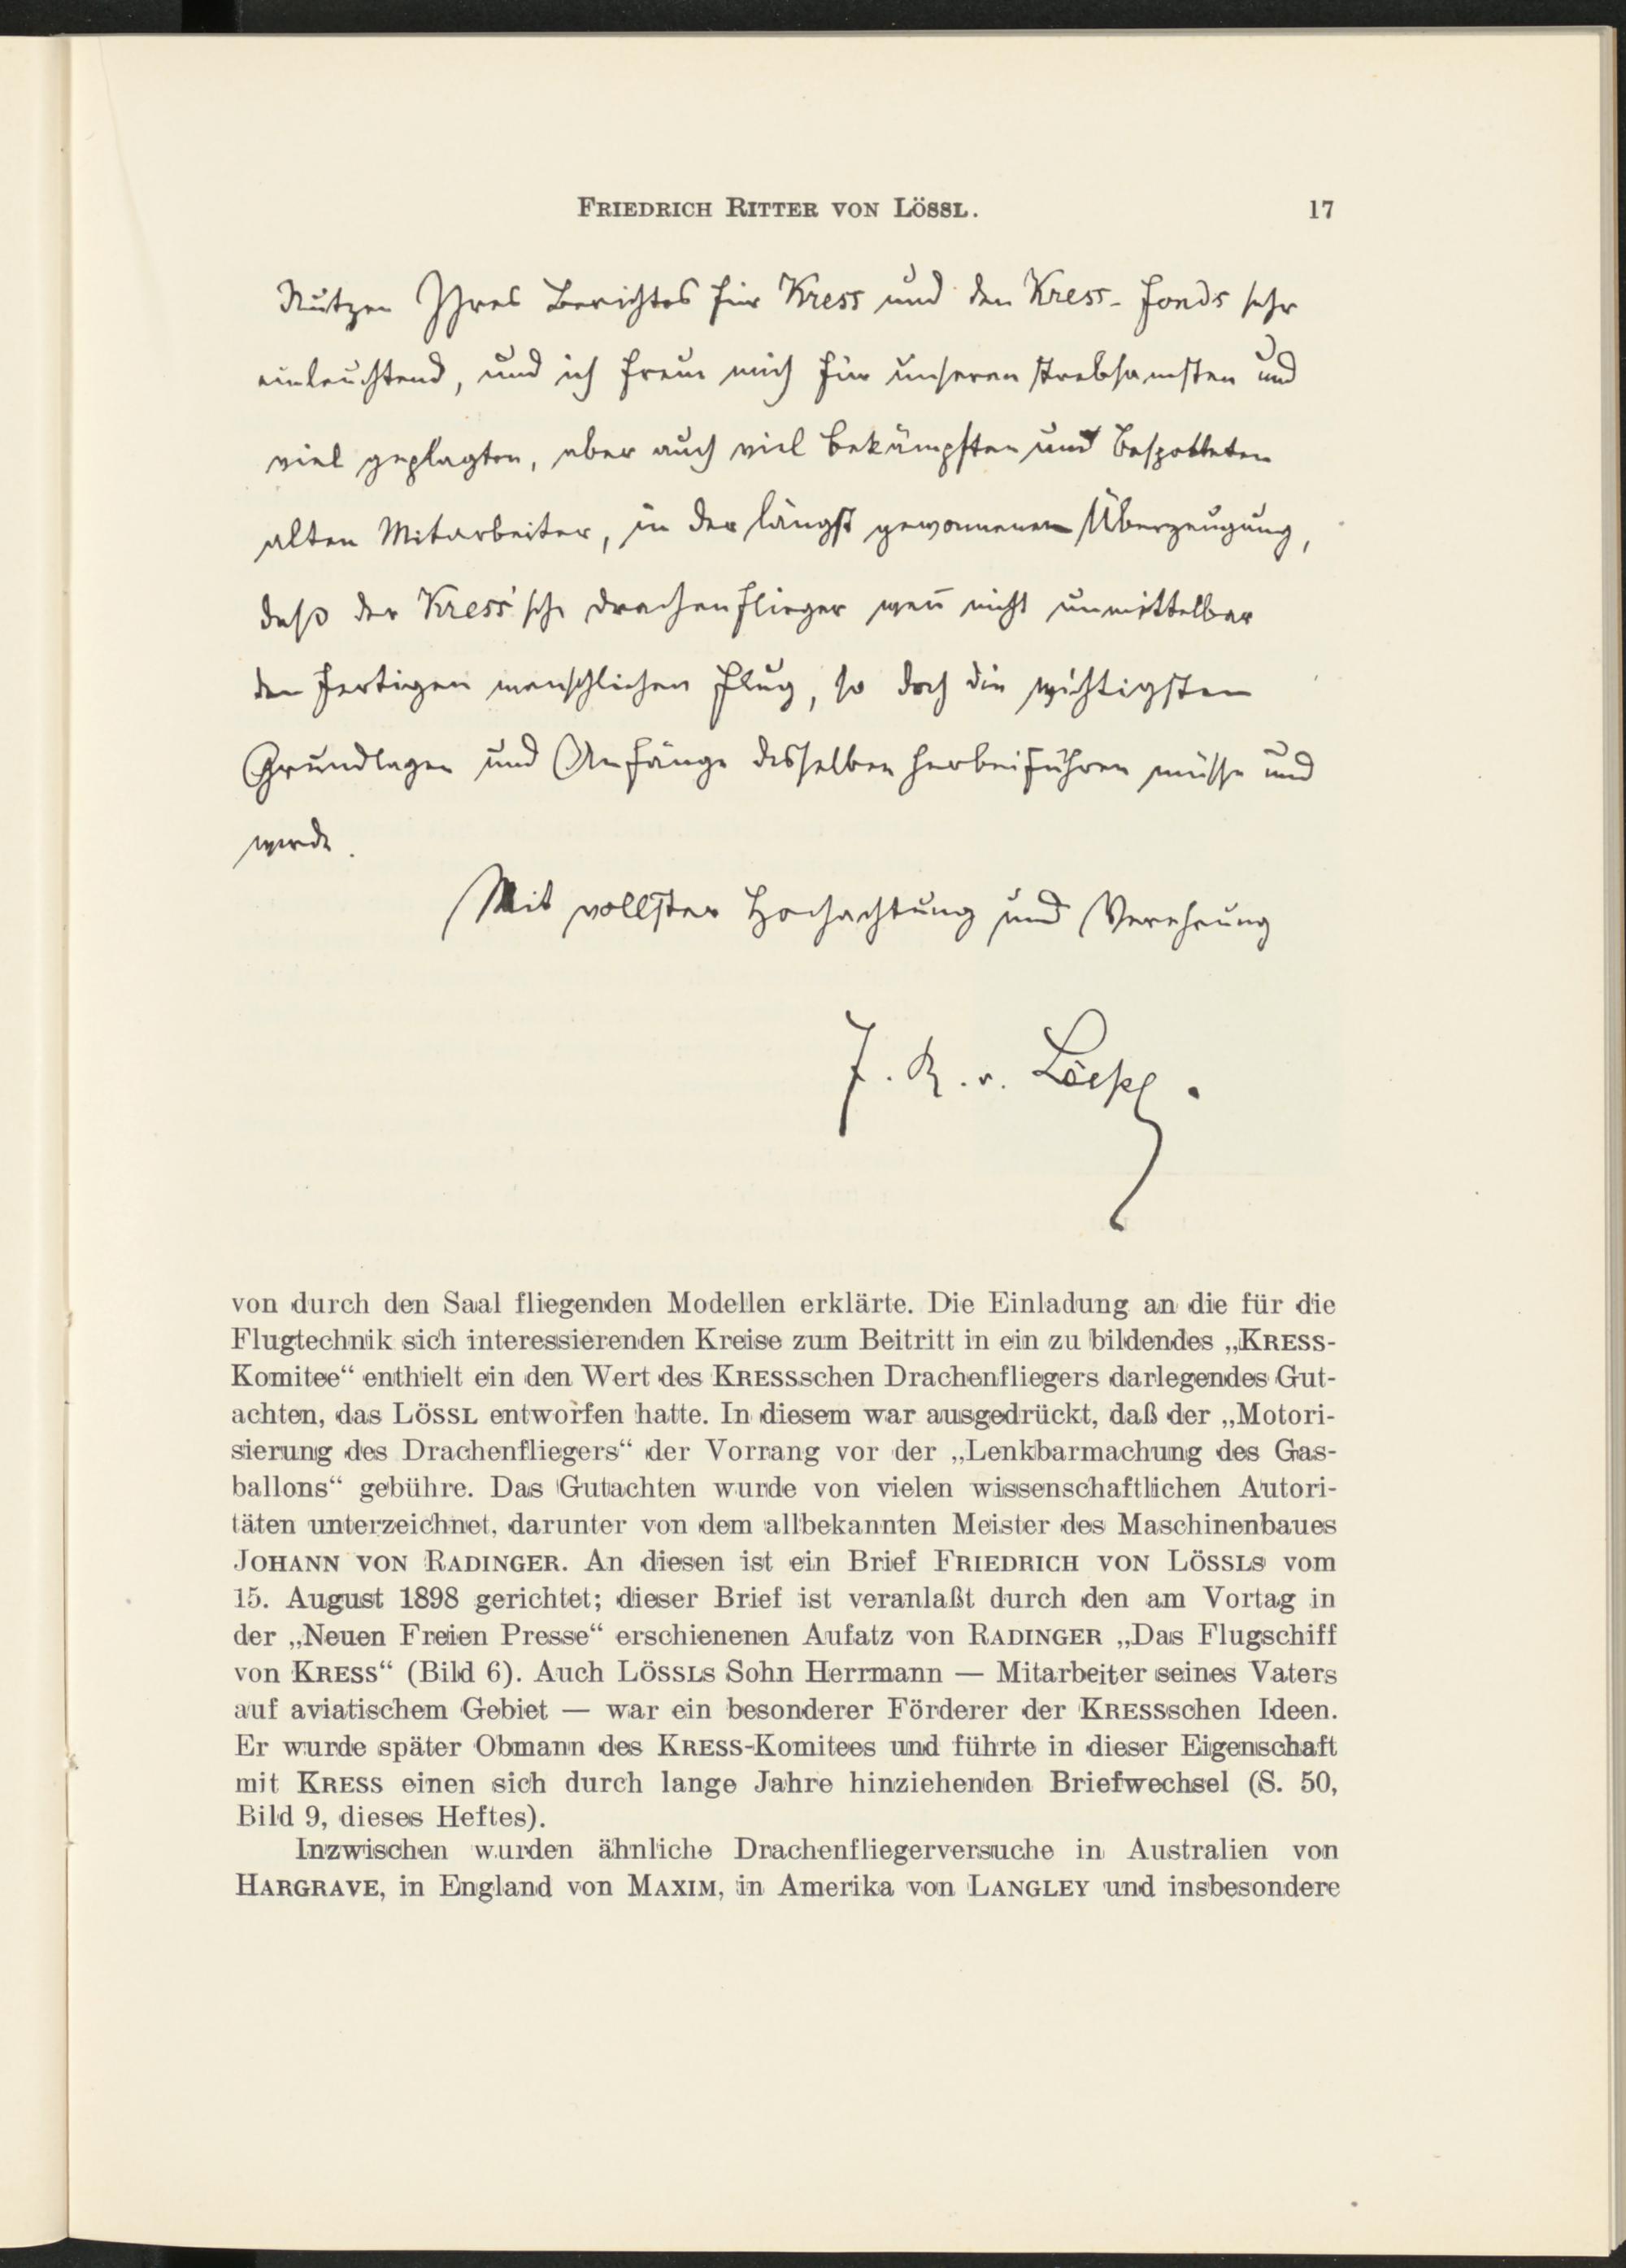 FRIEDRICH RITTER VON LÖSSL.
17
Nutzen Ihres Berichtes für Kress und den Kress-Fonds sehr
einleuchtend, und ich freue mich für unseren strebsamsten und
viel geplagten, aber auch viel bekämpften und bespotteten
alten Mitarbeiter, in der längst gewonnenen Überzeugung,
daß der Kress'sche Drachenflieger weñ nicht unmittelbar
den fertigen menschlichen Flug, so doch die wichtigsten
Grundlagen und Anfänge desselben herbeiführen müsse und
werde.
Mit vollster Hochachtung und Verehrung
F. R. v. Loessl.
von durch den Saal fliegenden Modellen erklärte. Die Einladung an die für die
Flugtechnik sich interessierenden Kreise zum Beitritt in ein zu bildendes „KRESS-
Komitee“ enthielt ein den Wert des KRESSschen Drachenfliegers darlegendes Gut-
achten, das LÖSSL entworfen hatte. In diesem war ausgedrückt, daß der „Motori-
sierung des Drachenfliegers“ der Vorrang vor der „Lenkbarmachung des Gas-
ballons“ gebühre. Das Gutachten wurde von vielen wissenschaftlichen Autori-
täten unterzeichnet, darunter von dem allbekannten Meister des Maschinenbaues
JOHANN VON RADINGER. An diesen ist ein Brief FRIEDRICH VON LÖSSLS vom
15. August 1898 gerichtet; dieser Brief ist veranlaßt durch den am Vortag in
der „Neuen Freien Presse“ erschienenen Aufatz von RADINGER „Das Flugschiff
von KRESS“ (Bild 6). Auch LÖSSLS Sohn Herrmann — Mitarbeiter seines Vaters
auf aviatischem Gebiet — war ein besonderer Förderer der KRESSschen Ideen.
Er wurde später Obmann des KRESS-Komitees und führte in dieser Eigenschaft
mit KRESS einen sich durch lange Jahre hinziehenden Briefwechsel (S. 50,
Bild 9, dieses Heftes).
Inzwischen wurden ähnliche Drachenfliegerversuche in Australien von
HARGRAVE, in England von MAXIM, in Amerika von LANGLEY und insbesondere